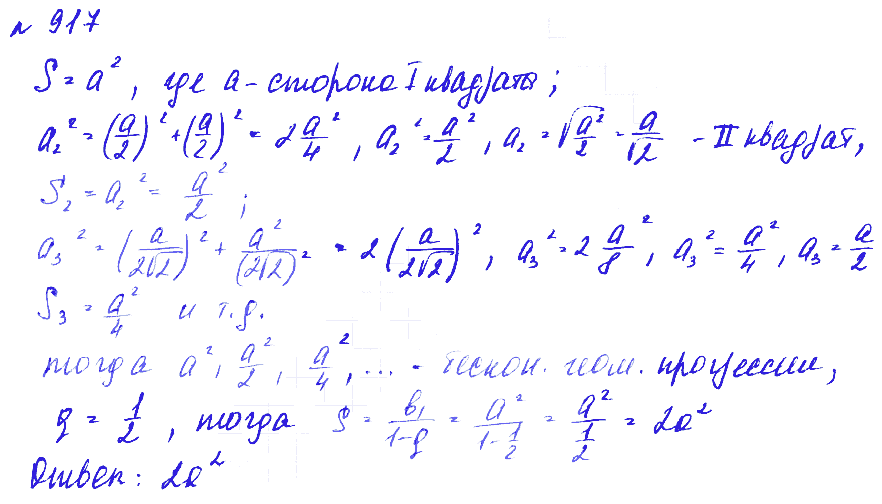 № 917
S = a², где a - сторона I квадрата;
a₂² = (a/2)² + (a/2)² = 2 a²/4, a₂² = a²/2, a₂ = √(a²/2) = a/√2 - II квадрат,
S₂ = a₂² = a²/2;
a₃² = (a/2√2)² + a²/(2√2)² = 2(a/2√2)², a₃² = 2 a²/8, a₃² = a²/4, a₃ = a/2
S₃ = a²/4 и т.д.
тогда a², a²/2, a²/4, ... - бескон. геом. прогрессии,
q = 1/2, тогда S = b₁/(1-q) = a²/(1-1/2) = a²/(1/2) = 2a²
Ответ: 2a²